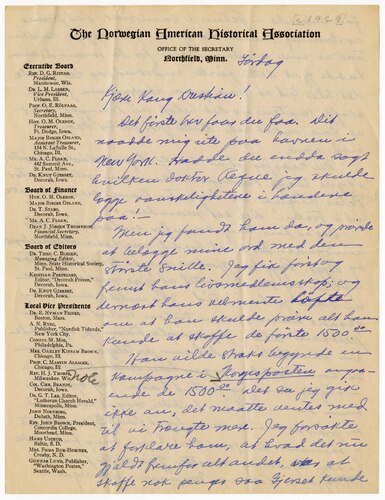 [c 1929]
The Norwegian American Historical Association
OFFICE OF THE SECRETARY
Northfield, Minn.
Lördag
Executive Board
REV. D. G. RISTAD,
President,
Manitowoc, Wis.
DR. L. M. LARSEN,
Vice President,
Urbana, Ill.
PROF. O. E. RÖLVAAG,
Secretary,
Northfield, Minn.
HON. O. M. OLESON,
Treasurer,
Ft. Dodge, Iowa.
MAJOR BIRGER OSLAND,
Assistant Treasurer,
134 N. LaSalle St.,
Chicago, Ill.
MR. A. C. FLOAN,
442 Summit Ave.,
St. Paul, Minn.
DR. KNUT GJERSET,
Decorah, Iowa.
Board of Finance
HON. O. M. OLESON,
MAJOR BIRGER OSLAND,
DR. T. STABO,
Decorah, Iowa.
MR. A. C. FLOAN,
DEAN J. JÖRGEN THOMPSON,
Financial Secretary,
Northfield, Minn.
Board of Editors
DR. THEO. C. BLEGEN,
Managing Editor,
Minn. State Historical Society,
St. Paul, Minn.
KRISTIAN PRESTGARD,
Editor, "Decorah Posten,"
Decorah, Iowa.
DR. KNUT GJERSET,
Decorah, Iowa.
Local Vice Presidents
DR. E. NUMAN FISHER,
Boston, Mass.
A. N. RYGG,
Publisher, "Nordisk Tidende,"
New York City.
CONSUL M. MOE,
Philadelphia, Pa.
MRS. OAKLEY KISSAM BROWN,
Chicago, Ill.
PROF. C. MARTIN ALSAGER,
Chicago, Ill.
REV. H. J. THORPE,
Milwaukee, Wis.
CHR. CHR. BRANDT,
Decorah, Iowa.
DR. G. T. LEE, Editor
"Lutheran Church Herald,"
Minneapolis, Minn.
JOHN NORDBYE,
Duluth, Minn.
REV. JOHN BROWN, President,
Concordia College,
Moorhead, Minn.
HANS USTRUD,
Baltic, S. D.
MRS. FRIDA BUE-HOMNES,
Crosby, N. Dak.
GUNNAR LUND, Publisher,
"Washington Posten,"
Seattle, Wash.
Kjære Kong
Det første brev faar du faa. Dit
naadde mig ute paa havnen i
New York. Hadde du endda sagt
hvilken doktor jeg skulde
lægge vanskeligheten i hændene
paa!
Men jeg fandt ham da, og prøvde
at belægge mine ord med den
største snille. Jeg fik først og
fremst hans livsmedlemskap; og
dernæst hans ubmente løfte
om at han skulde prøve alt han
kunde at skaffe de første 1500.00
Han vilde straks begynde en
kampagne i Norgesposten angaa-
ende de 1500.00 det sa jeg gik
ikke an, det maatte ventes med
til vi trængte mer. Jeg forsøkte
at forklare ham, at hvad det nu
gjaldt fremfor alt andet, var at
skaffe nok penger saa Gjerset kunde